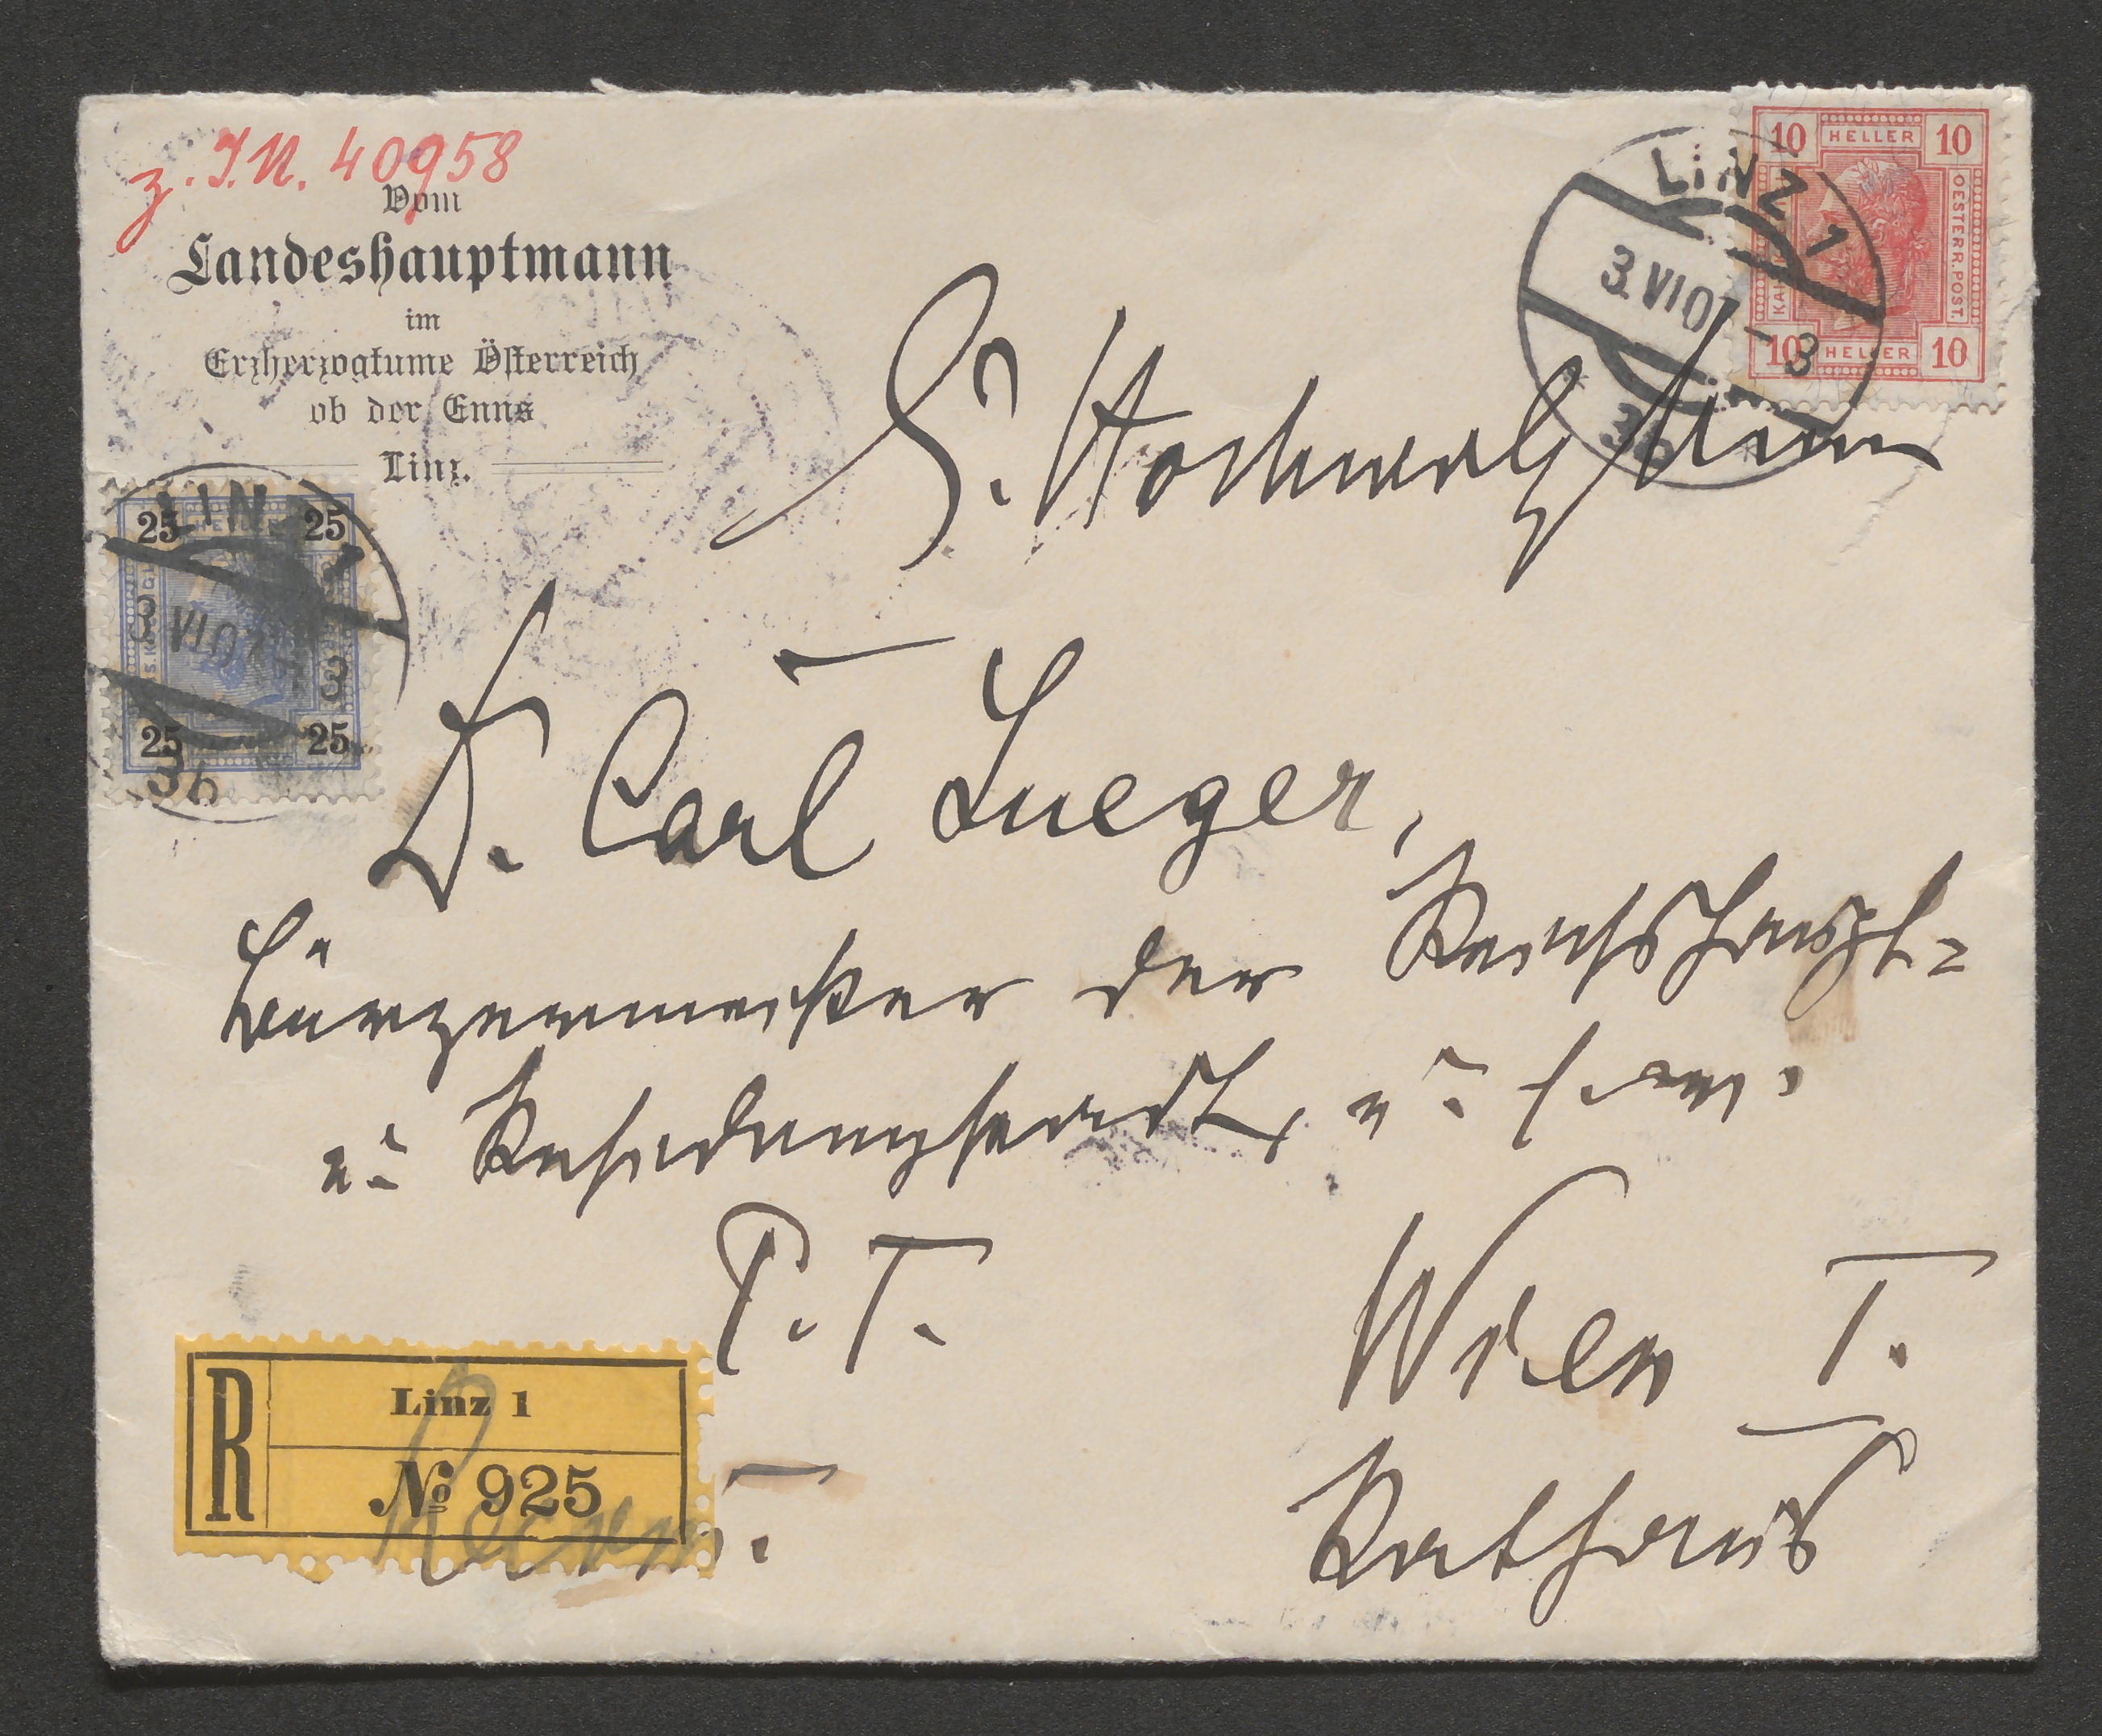 z. I.N. 40958
Vom
Landeshauptmann
im
Erzherzogtume Österreich
ob der Enns
Linz.
10 HELLER 10
OESTERR. POST.
10 HELLER 10
LINZ 1
3.VI.07-3
3b
25 HELLER 25
25 25
LINZ 1
3.VI.07 3
3b
Sr. Hochwolgeboren
Dr. Carl Lueger,
Bürgermeister der Reichshaupt=
u. Residenzstadt, u. s. w.
P. T.
Wien I.
Rathaus
R
Linz 1
No 925
Recom.